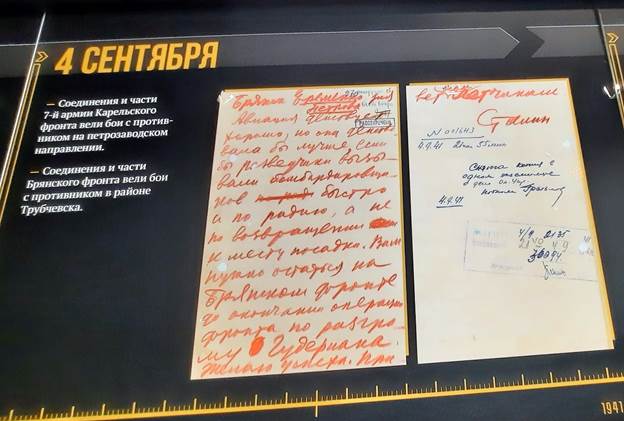 4 СЕНТЯБРЯ
— Соединения и части
7-й армии Карельского
фронта вели бои с против-
ником на петрозаводском
направлении.
— Соединения и части
Брянского фронта вели бои
с противником в районе
Трубчевска.
Брянск Еременко для
Петрова
Авиация действует
хорошо, но она действо
вала бы лучше, если
бы разведчики вызы
вали бомбардировщи
ков быстро
и по радио, а не
по возвращении
к месту посадки. Вам
нужно остаться на
Брянском фронте
до окончания операции
фронта по разгро
му Гудериана
Желаю успеха. При
вет
Сталин
4.9.41
Снята копия с
4.9.41
4/9 2135
1941